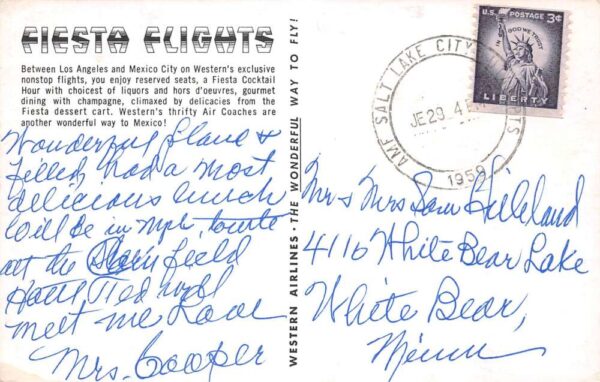 FIESTA FLIGHTS
Between Los Angeles and Mexico City on Western's exclusive
nonstop flights, you enjoy reserved seats, a Fiesta Cocktail
Hour with choicest of liquors and hors d'oeuvres, gourmet
dining with champagne, climaxed by delicacies from the
Fiesta dessert cart. Western's thrifty Air Coaches are
another wonderful way to Mexico!
Wonderful plane &
filled had a most
delicious lunch
Will be in mpls,
at the field
Hotel, Ted will
meet me Love
Mrs. Cooper
WESTERN AIRLINES · THE WONDERFUL WAY TO FLY!
AMF SALT LAKE CITY
JE 29 4
1959
U.S. POSTAGE 3¢
IN GOD WE TRUST
LIBERTY
Mr & Mrs Sam Gilleland
4116 White Bear Lake
White Bear,
Minn